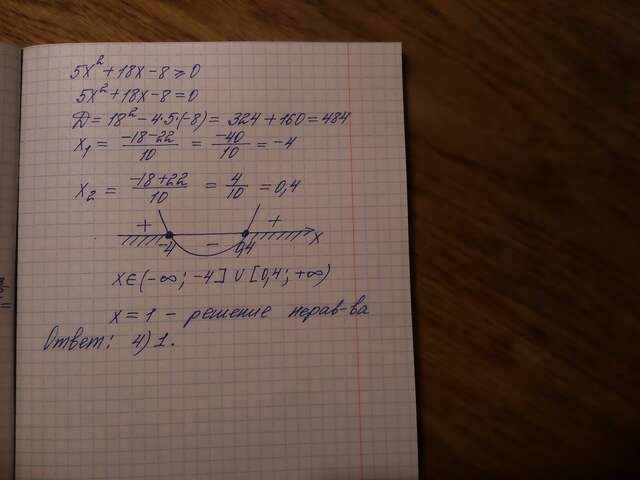 5x² + 18x - 8 ≥ 0
5x² + 18x - 8 = 0
D = 18² - 4·5·(-8) = 324 + 160 = 484
x₁ = (-18-22)/10 = -40/10 = -4
x₂ = (-18+22)/10 = 4/10 = 0,4
+ - +
-4 0,4 x
x ∈ (-∞; -4] ∪ [0,4; +∞)
x = 1 - решение нерав-ва
Ответ: 4) 1.